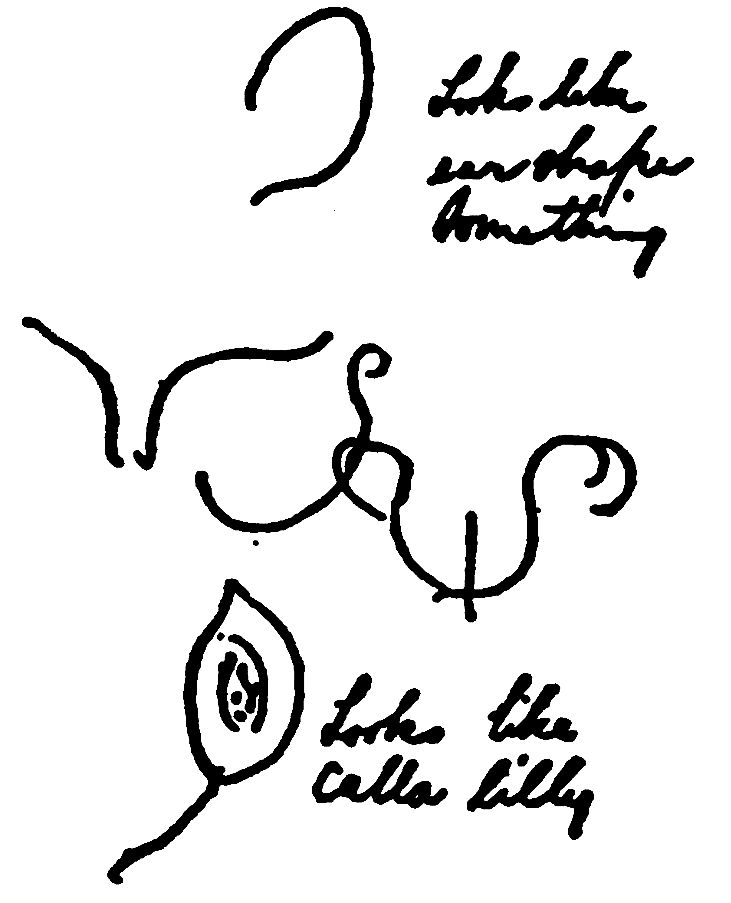 Looks like
ear shape
Something
Looks like
Calla lilly